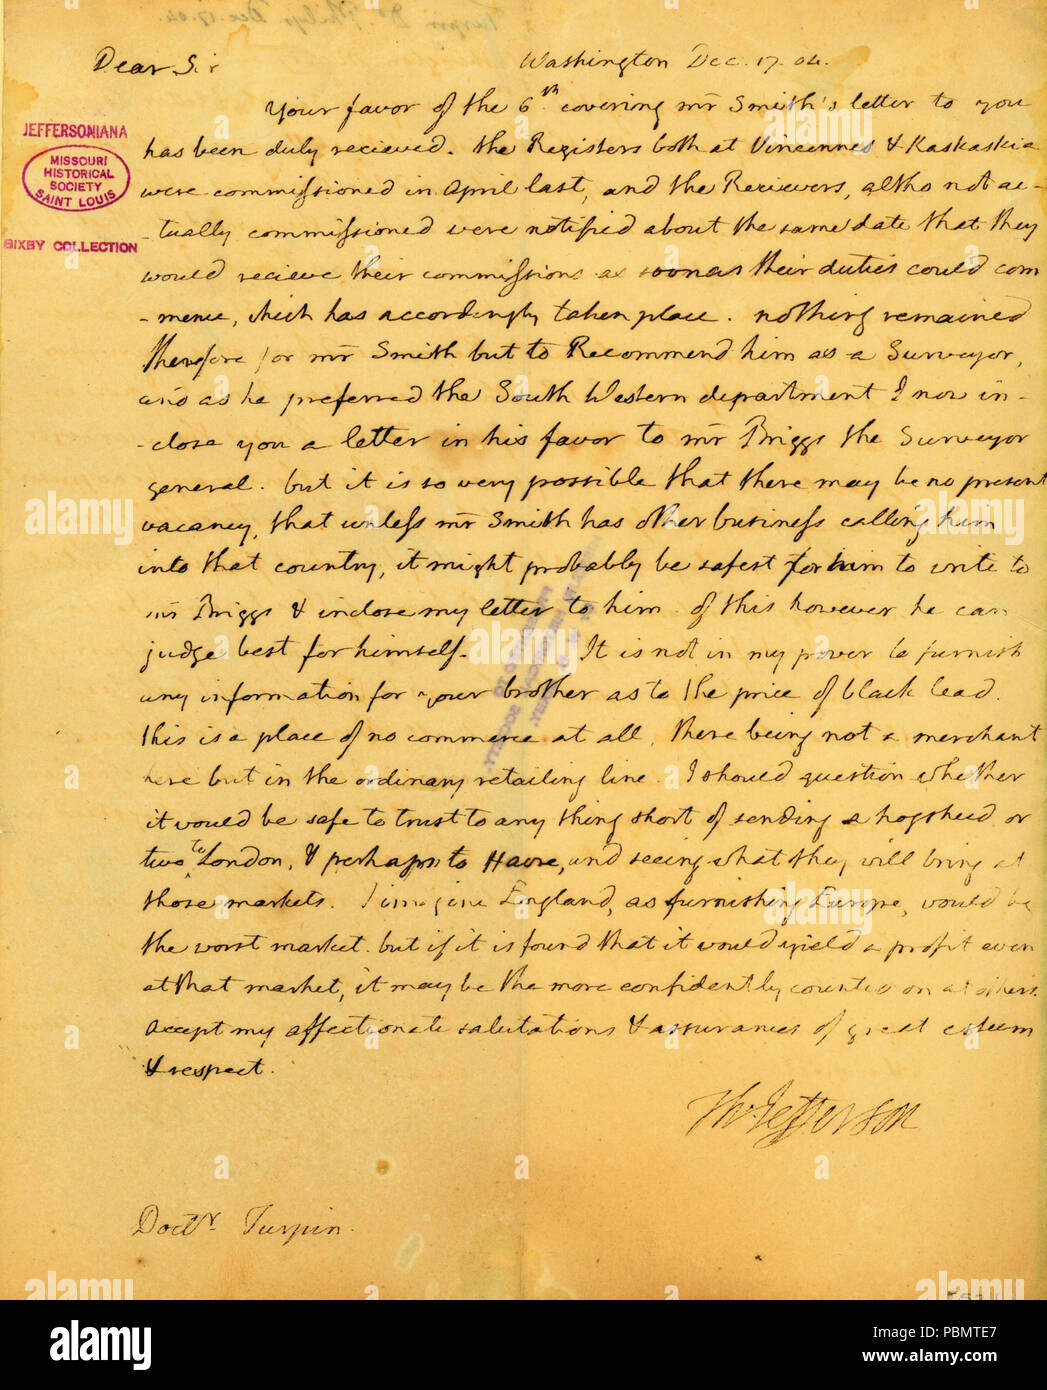 Dear Sir Washington Dec. 17. 04.
Your favor of the 6th covering mr Smith's letter to you
has been duly recieved. the Registers both at Vincennes & Kaskaskia
were commissioned in April last, and the Recievers, altho not ac-
-tually commissioned were notified about the same date that they
would recieve their commissions as soon as their duties could com
-mence, which has accordingly taken place. nothing remained
therefore for mr Smith but to Recommend him as a Surveyor,
and as he preferred the South Western department I now in-
-close you a letter in his favor to mr Briggs the Surveyor
general. but it is so very possible that there may be no present
vacancy, that unless mr Smith has other business calling him
into that country, it might probably be safest for him to write to
mr Briggs & inclose my letter to him. of this however he can
judge best for himself. It is not in my power to furnish
any information for your brother as to the price of black lead.
this is a place of no commerce at all, there being not a merchant
here but in the ordinary retailing line. I should question whether
it would be safe to trust to any thing short of sending a hogshead or
two to London, & perhaps to Havre, and seeing what they will bring at
those markets. I imagine England, as furnishing Europe, would be
the worst market. but if it is found that it would yield a profit even
at that market, it may be the more confidently counted on at others.
Accept my affectionate salutations & assurances of great esteem
& respect.
Th: Jefferson
Doctr. Turpin.
JEFFERSONIANA
MISSOURI
HISTORICAL
SOCIETY
SAINT LOUIS
BIXBY COLLECTION
alamy
a
alamy
Image ID: PBMTE7
www.alamy.com